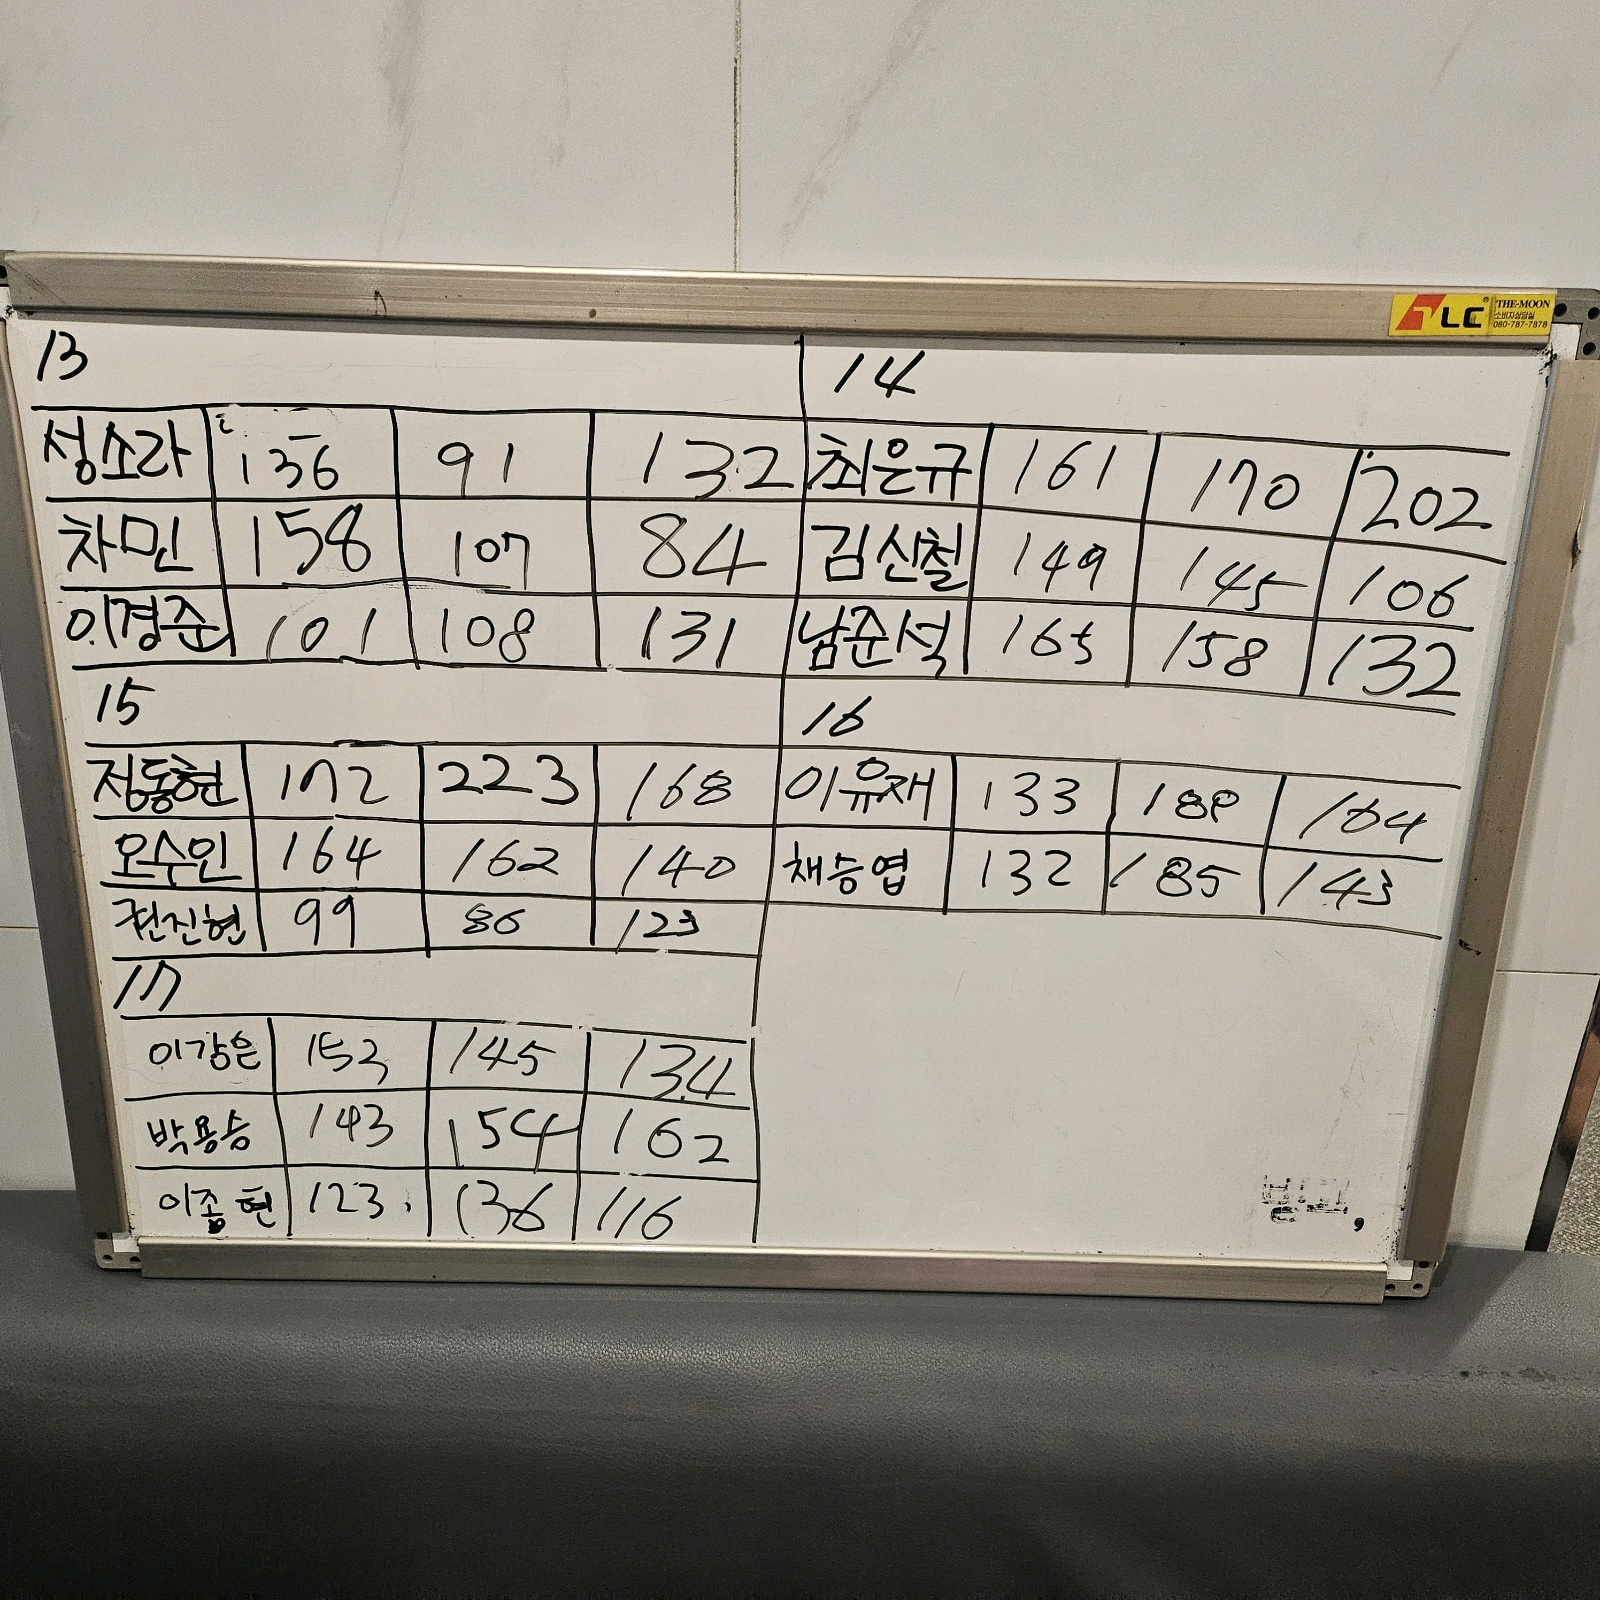 LC THE-MOON
소비자상담실
080-787-7878
13
성소라 136 91 132
차민 158 107 84
이경준 101 108 131
14
최은규 161 170 202
김신철 149 145 106
남준석 165 158 132
15
정동현 172 223 168
오수인 164 162 140
권진현 99 86 123
16
이유재 133 188 164
채승엽 132 185 143
17
이강은 152 145 134
박용승 143 154 162
이종현 123 136 116